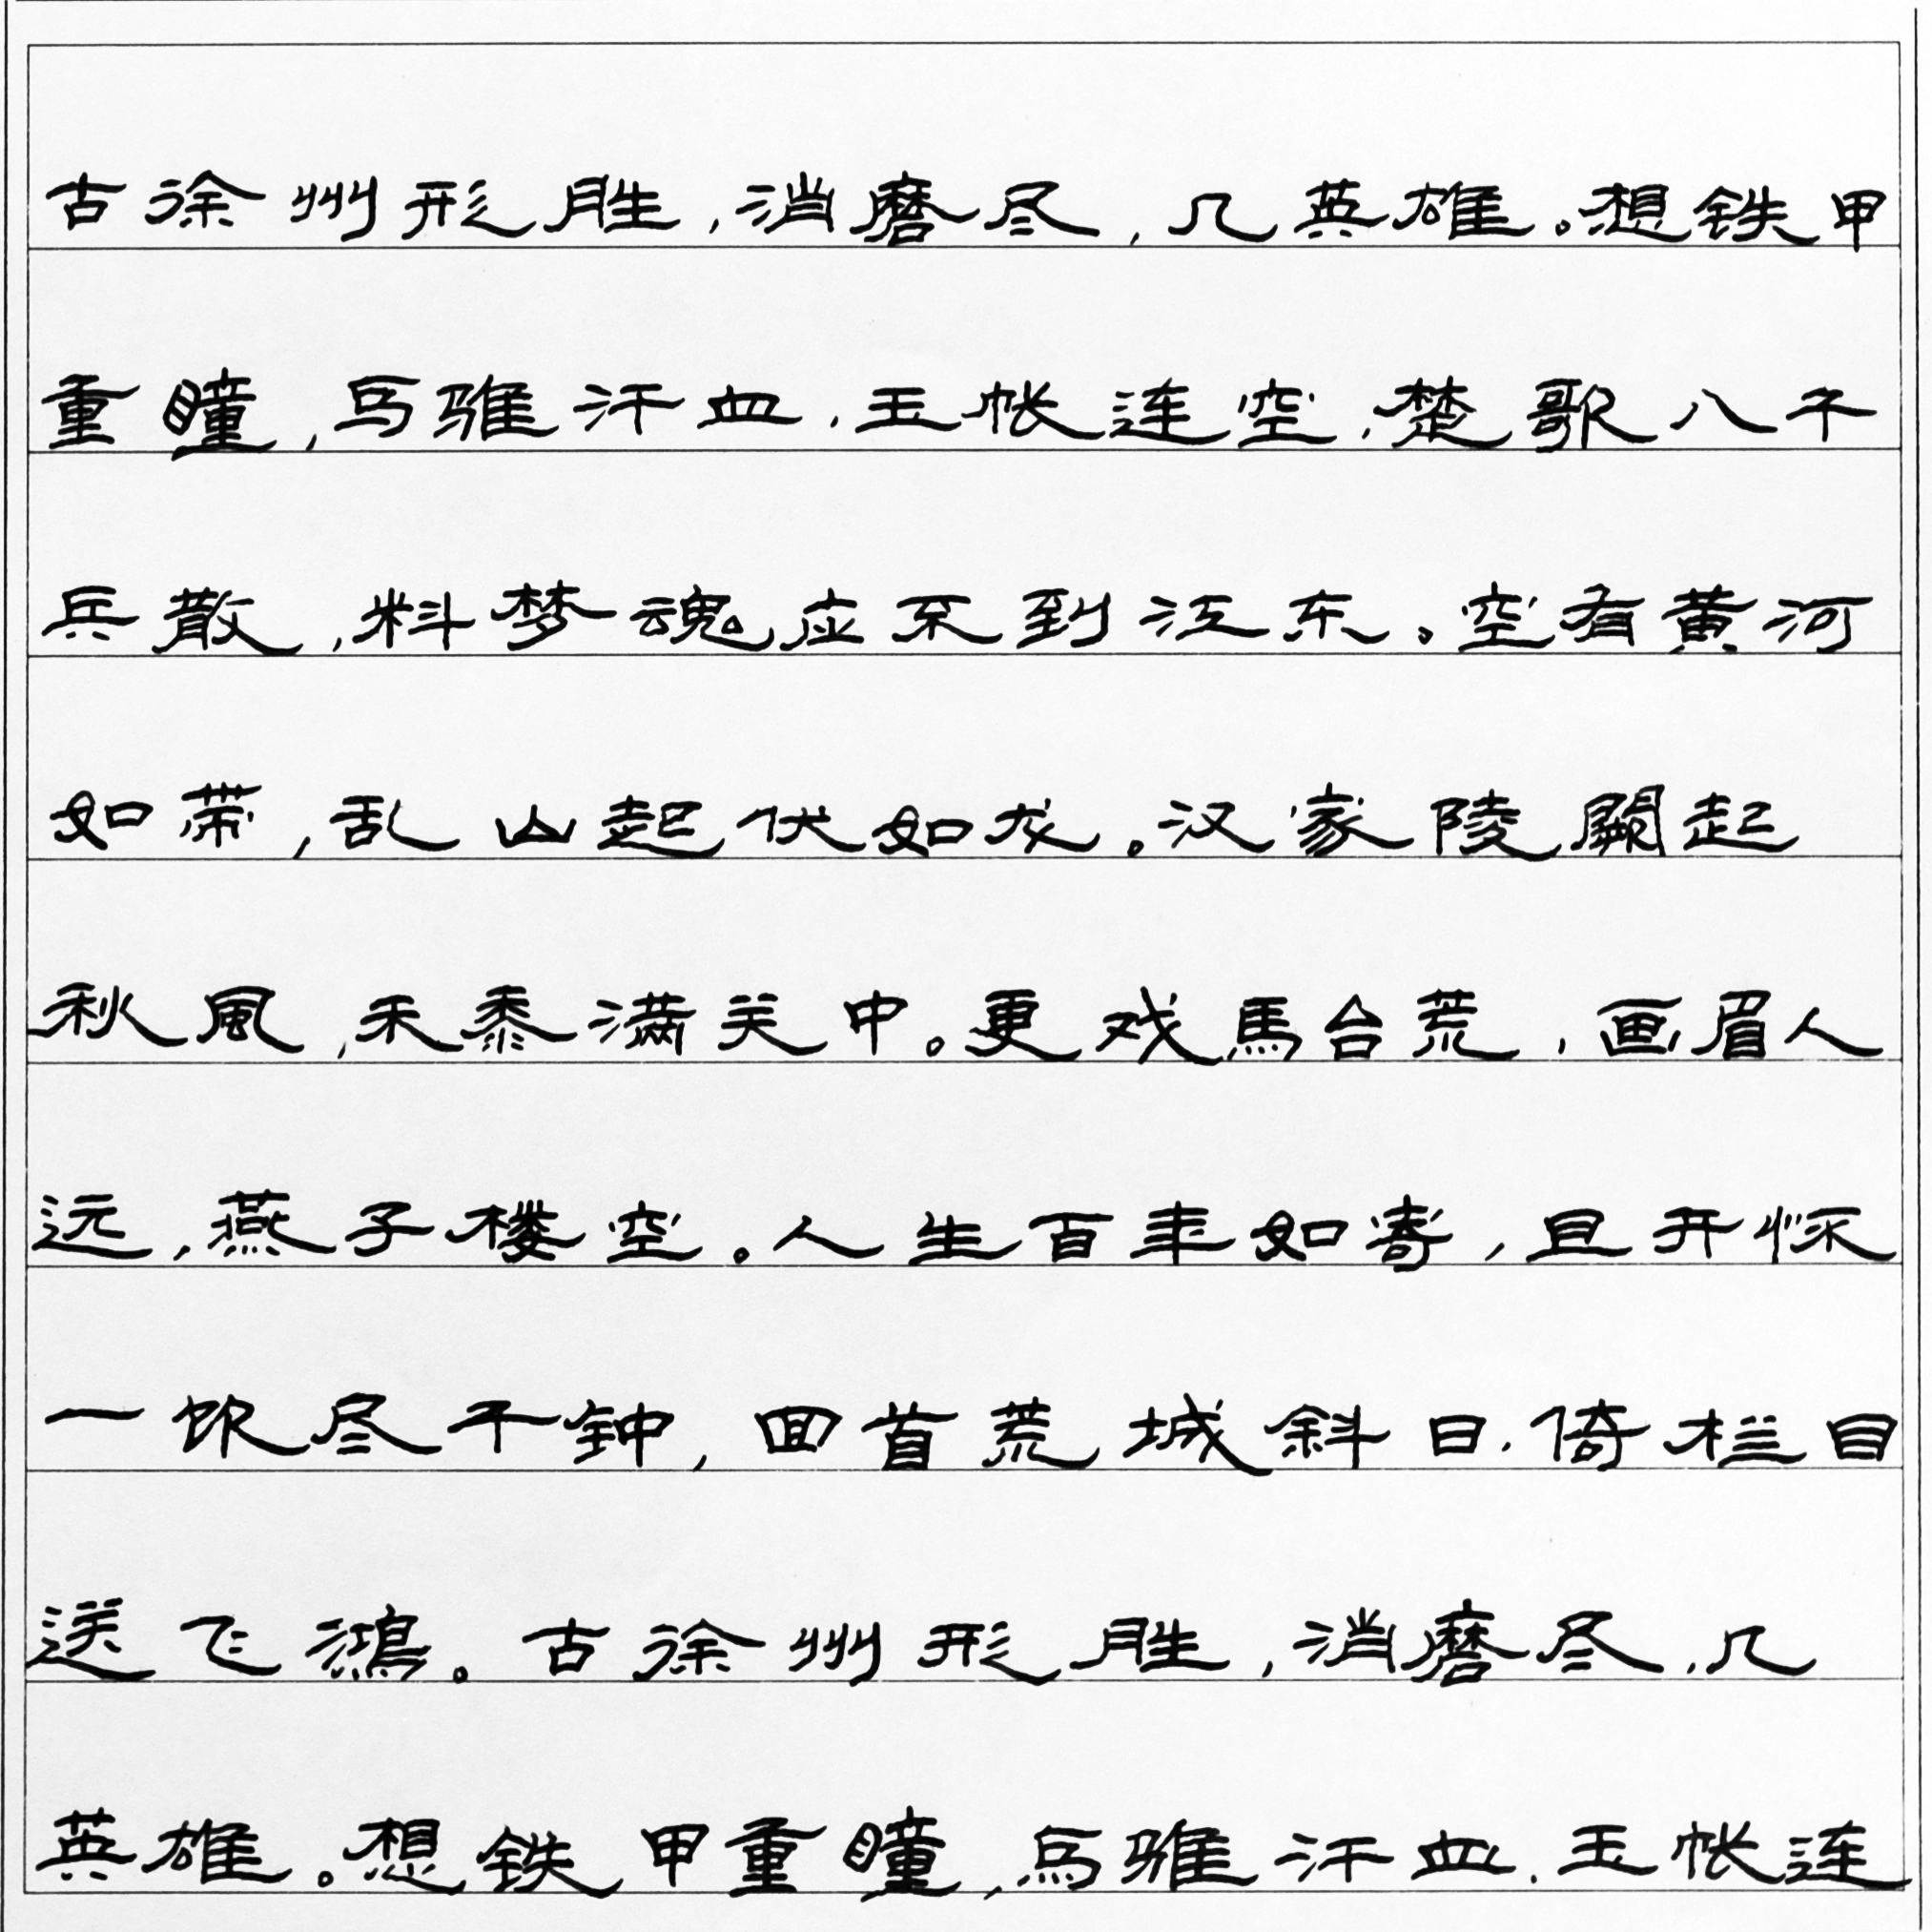 古徐州形胜,消磨尽,几英雄。想铁甲
重瞳,乌骓汗血,玉帐连空,楚歌八千
兵散,料梦魂应不到江东。空有黄河
如带,乱山起伏如龙。汉家陵阙起
秋風,禾黍满关中。更戏馬台荒,画眉人
远,燕子楼空。人生百年如寄,且开怀
一饮尽千钟,回首荒城斜日,倚栏目
送飞鴻。古徐州形胜,消磨尽,几
英雄。想铁甲重瞳,乌骓汗血,玉帐连